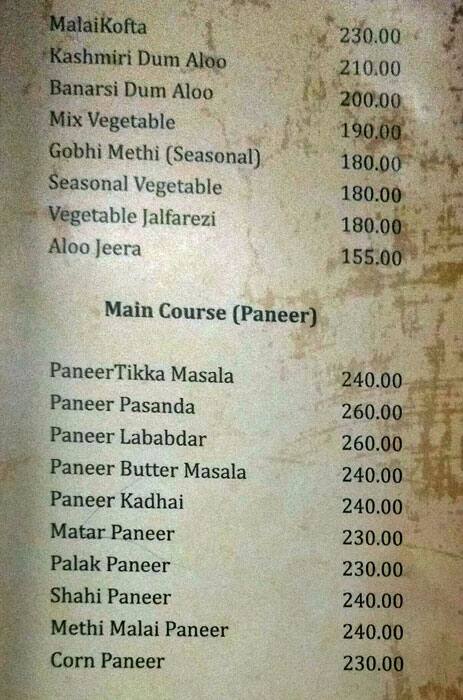 MalaiKofta 230.00
Kashmiri Dum Aloo 210.00
Banarsi Dum Aloo 200.00
Mix Vegetable 190.00
Gobhi Methi (Seasonal) 180.00
Seasonal Vegetable 180.00
Vegetable Jalfarezi 180.00
Aloo Jeera 155.00
Main Course (Paneer)
PaneerTikka Masala 240.00
Paneer Pasanda 260.00
Paneer Lababdar 260.00
Paneer Butter Masala 240.00
Paneer Kadhai 240.00
Matar Paneer 230.00
Palak Paneer 230.00
Shahi Paneer 240.00
Methi Malai Paneer 240.00
Corn Paneer 230.00